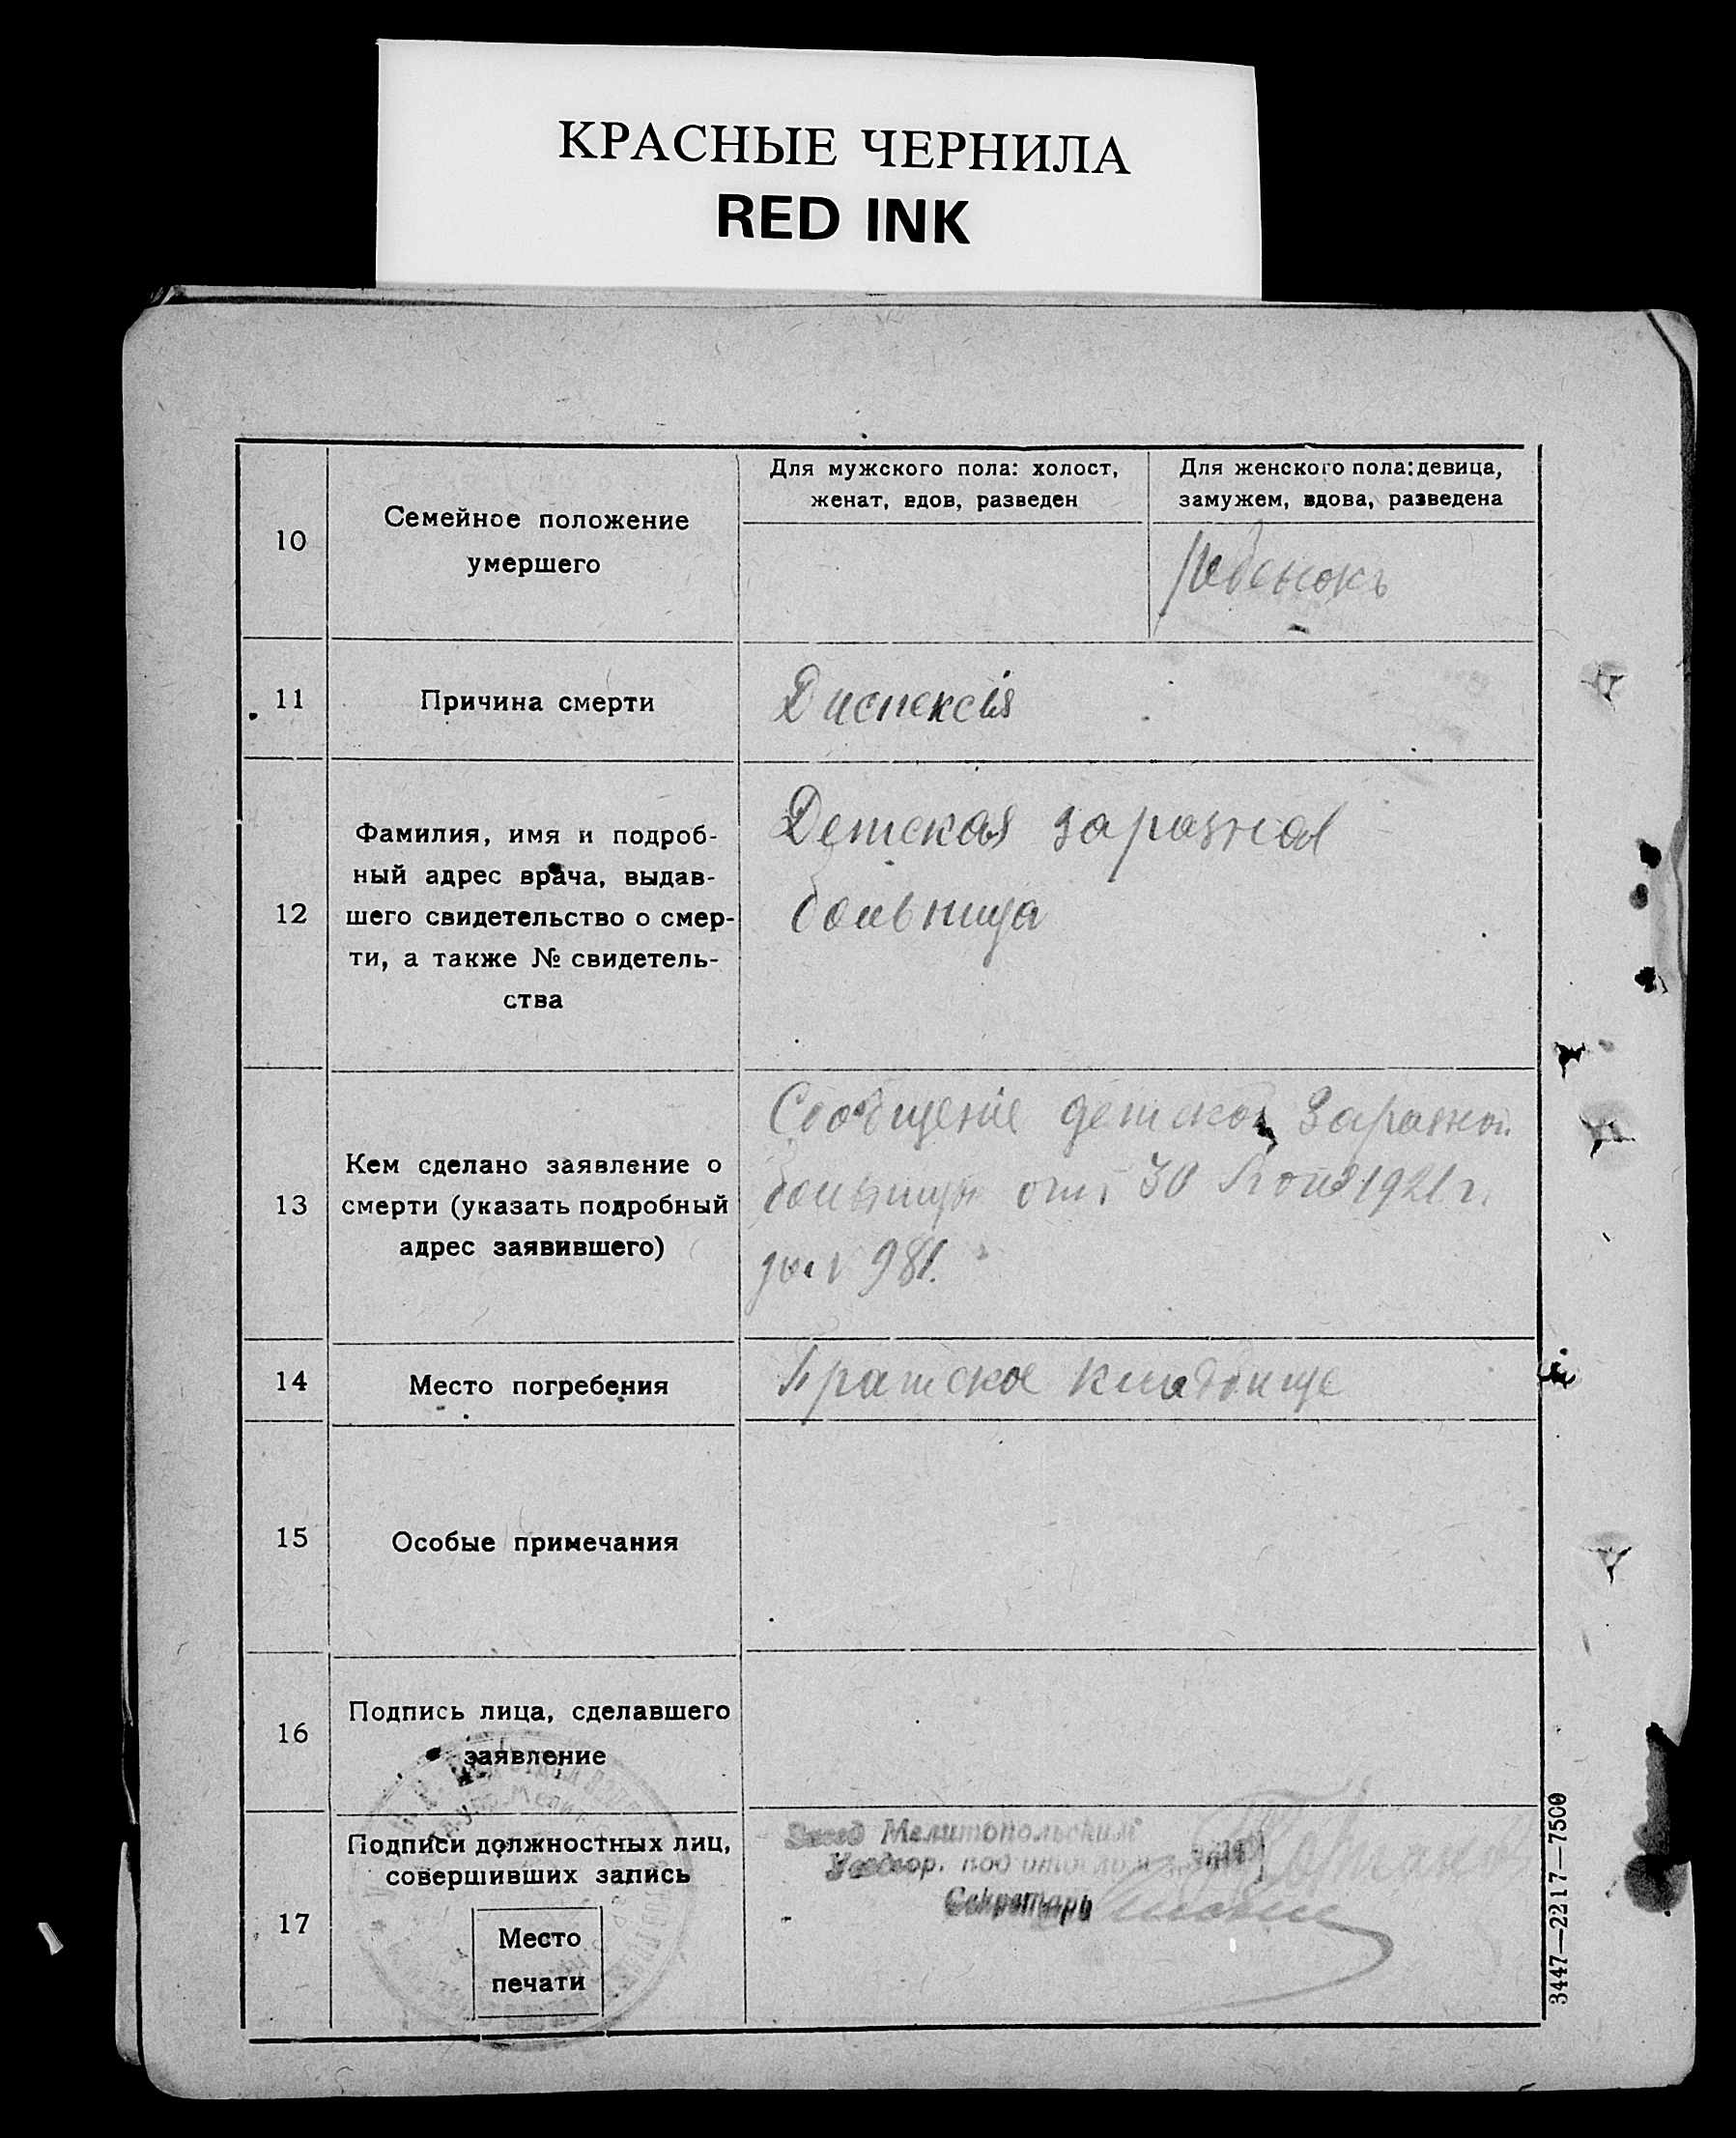 КРАСНЫЕ ЧЕРНИЛА
RED INK
10
Семейное положение
умершего
Для мужского пола: холост,
женат, вдов, разведен
Для женского пола: девица,
замужем, вдова, разведена
Ребенокъ
11
Причина смерти
Диспексія
12
Фамилия, имя и подроб-
ный адрес врача, выдав-
шего свидетельство о смер-
ти, а также № свидетель-
ства
Детская заразная
больница
13
Кем сделано заявление о
смерти (указать подробный
адрес заявившего)
Сообщеніе детской Заразной
больницы от 30 1921 г.
981.
14
Место погребения
Братское кладбище
15
Особые примечания
16
Подпись лица, сделавшего
заявление
17
Подписи должностных лиц,
совершивших запись
Место
печати
Мелитопольским
под
Секретарь
3447—2217—7500